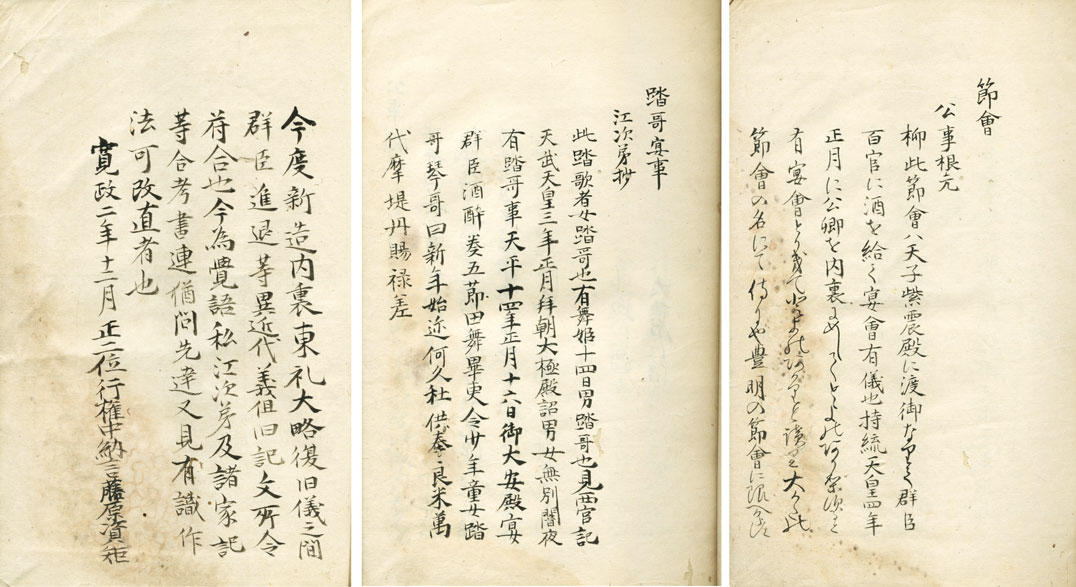 節會
公事根元
抑此節會ハ天子紫震殿に渡御なりて群臣
百官に酒を給て宴會有儀也持統天皇四年
正月に公卿を内裏に
有宴會
節會の名にて侍りや豊明の節會に
踏哥宴事
江次第抄
此踏歌者女踏哥也有舞姫十四日男踏哥也見西宮記
天武天皇三年正月拜朝大極殿詔男女無別闇夜
有踏哥事天平十四年正月十六日御大安殿宴
群臣酒酔奏五節田舞畢更令少年童女踏
哥琴哥曰新年始邇何久社供奉良米萬
代摩提丹賜禄差
今度新造内裏東礼大略復旧儀之間
群臣進退等異近代義但旧記文所令
苻合也今為覺語私江次第及諸家記
等合考書連猶問先達又見有識作
法可改直者也
寛政二年十二月 正二位行權中納言藤原資矩